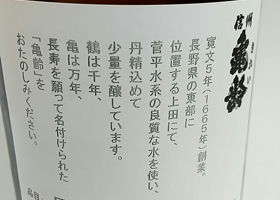 信州
亀齢
寛文5年(1665年)創業。
長野県の東部に
位置する上田にて、
菅平水系の良質な水を使い、
丹精込めて
少量を醸しています。
鶴は千年、
亀は万年、
長寿を願って名付けられた
「亀齢」を
おたのしみください。
品目